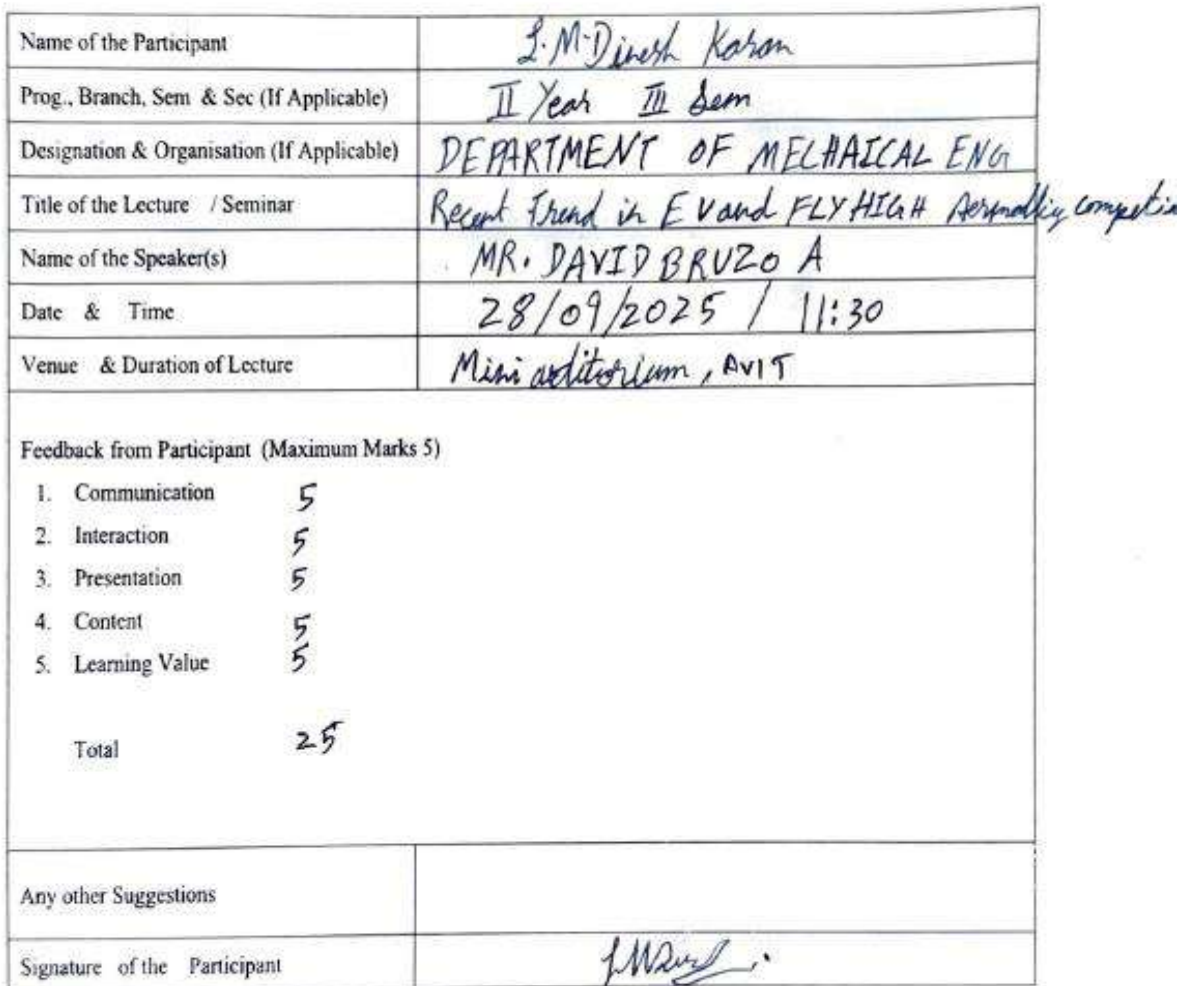 Name of the Participant L.M.Dinesh Karan
Prog., Branch, Sem & Sec (If Applicable) II Year III Sem
Designation & Organisation (If Applicable) DEPARTMENT OF MECHAICAL ENG
Title of the Lecture / Seminar Recent Trend in E V and FLY HIGH
Name of the Speaker(s) MR. DAVID BRUZO A
Date & Time 28/09/2025 / 11:30
Venue & Duration of Lecture Mini auditorium, AVIT
Feedback from Participant (Maximum Marks 5)
1. Communication 5
2. Interaction 5
3. Presentation 5
4. Content 5
5. Learning Value 5
Total 25
Any other Suggestions
Signature of the Participant